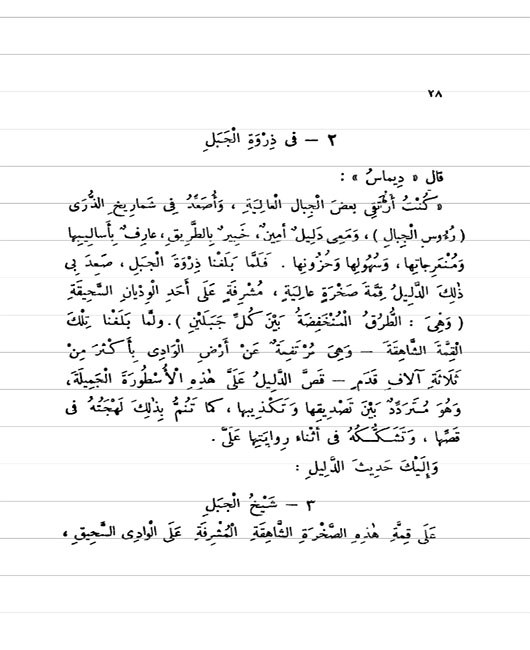 ٢٨
٢ – فى ذِرْوَةِ الْجَبَلِ
قال « دِيماسُ » :
« كُنْتُ أَرْتَقِى بعضَ الْجِبالِ الْعالِيَةِ ، وَأُصَعِّدُ فِى شَمارِيخِ الذُّرَى
( رُءُوسِ الْجِبالِ ) ، وَمَعِى دَلِيلٌ أَمِينٌ، خَبِيرٌ بِالطَّرِيقِ، عارِفٌ بِأَسالِيبِها
وَمُنْعَرِجاتِها ، وَسُهُولِها وَحُزُونِها . فَلَمَّا بَلَغْنا ذِرْوَةَ الْجَبَلِ ، صَعِدَ بِى
ذٰلِكَ الدَّلِيلُ قِمَّةَ صَخْرَةٍ عالِيَةٍ ، مُشْرِفَةٍ عَلَى أَحَدِ الْوِدْيانِ السَّحِيقَةِ
( وَهِىَ : الطُّرُقُ الْمُنْخَفِضَةُ بَيْنَ كُلِّ جَبَلَيْنِ ) . ولمَّا بَلَغْنا تِلْكَ
الْقِمَّةَ الشَّاهِقَةَ – وَهِىَ مُرْتَفِعَةٌ عَنْ أَرْضِ الْوَادِى بِأَكْثَرَ مِنْ
ثَلَاثَةِ آلافِ قَدَمٍ – قَصَّ الدَّلِيلُ عَلَىَّ هٰذِهِ الْأُسْطُورَةَ الْجَمِيلَةَ،
وَهُوَ مُتَرَدِّدٌ بَيْنَ تَصْدِيقِها وَتَكْذِيبِها ، كما تَنُمُّ بِذٰلِكَ لَهْجَتُهُ فى
قَصِّها ، وَتَشَكُّكُهُ فى أَثْناءِ رِوايَتِها عَلَىَّ .
وَإِلَيْكَ حَدِيثَ الدَّلِيلِ :
٣ – شَيْخُ الْجَبَلِ
عَلَى قِمَّةِ هٰذِهِ الصَّخْرَةِ الشَّاهِقَةِ الْمُشْرِفَةِ عَلَى الْوادِى السَّحِيقِ ،